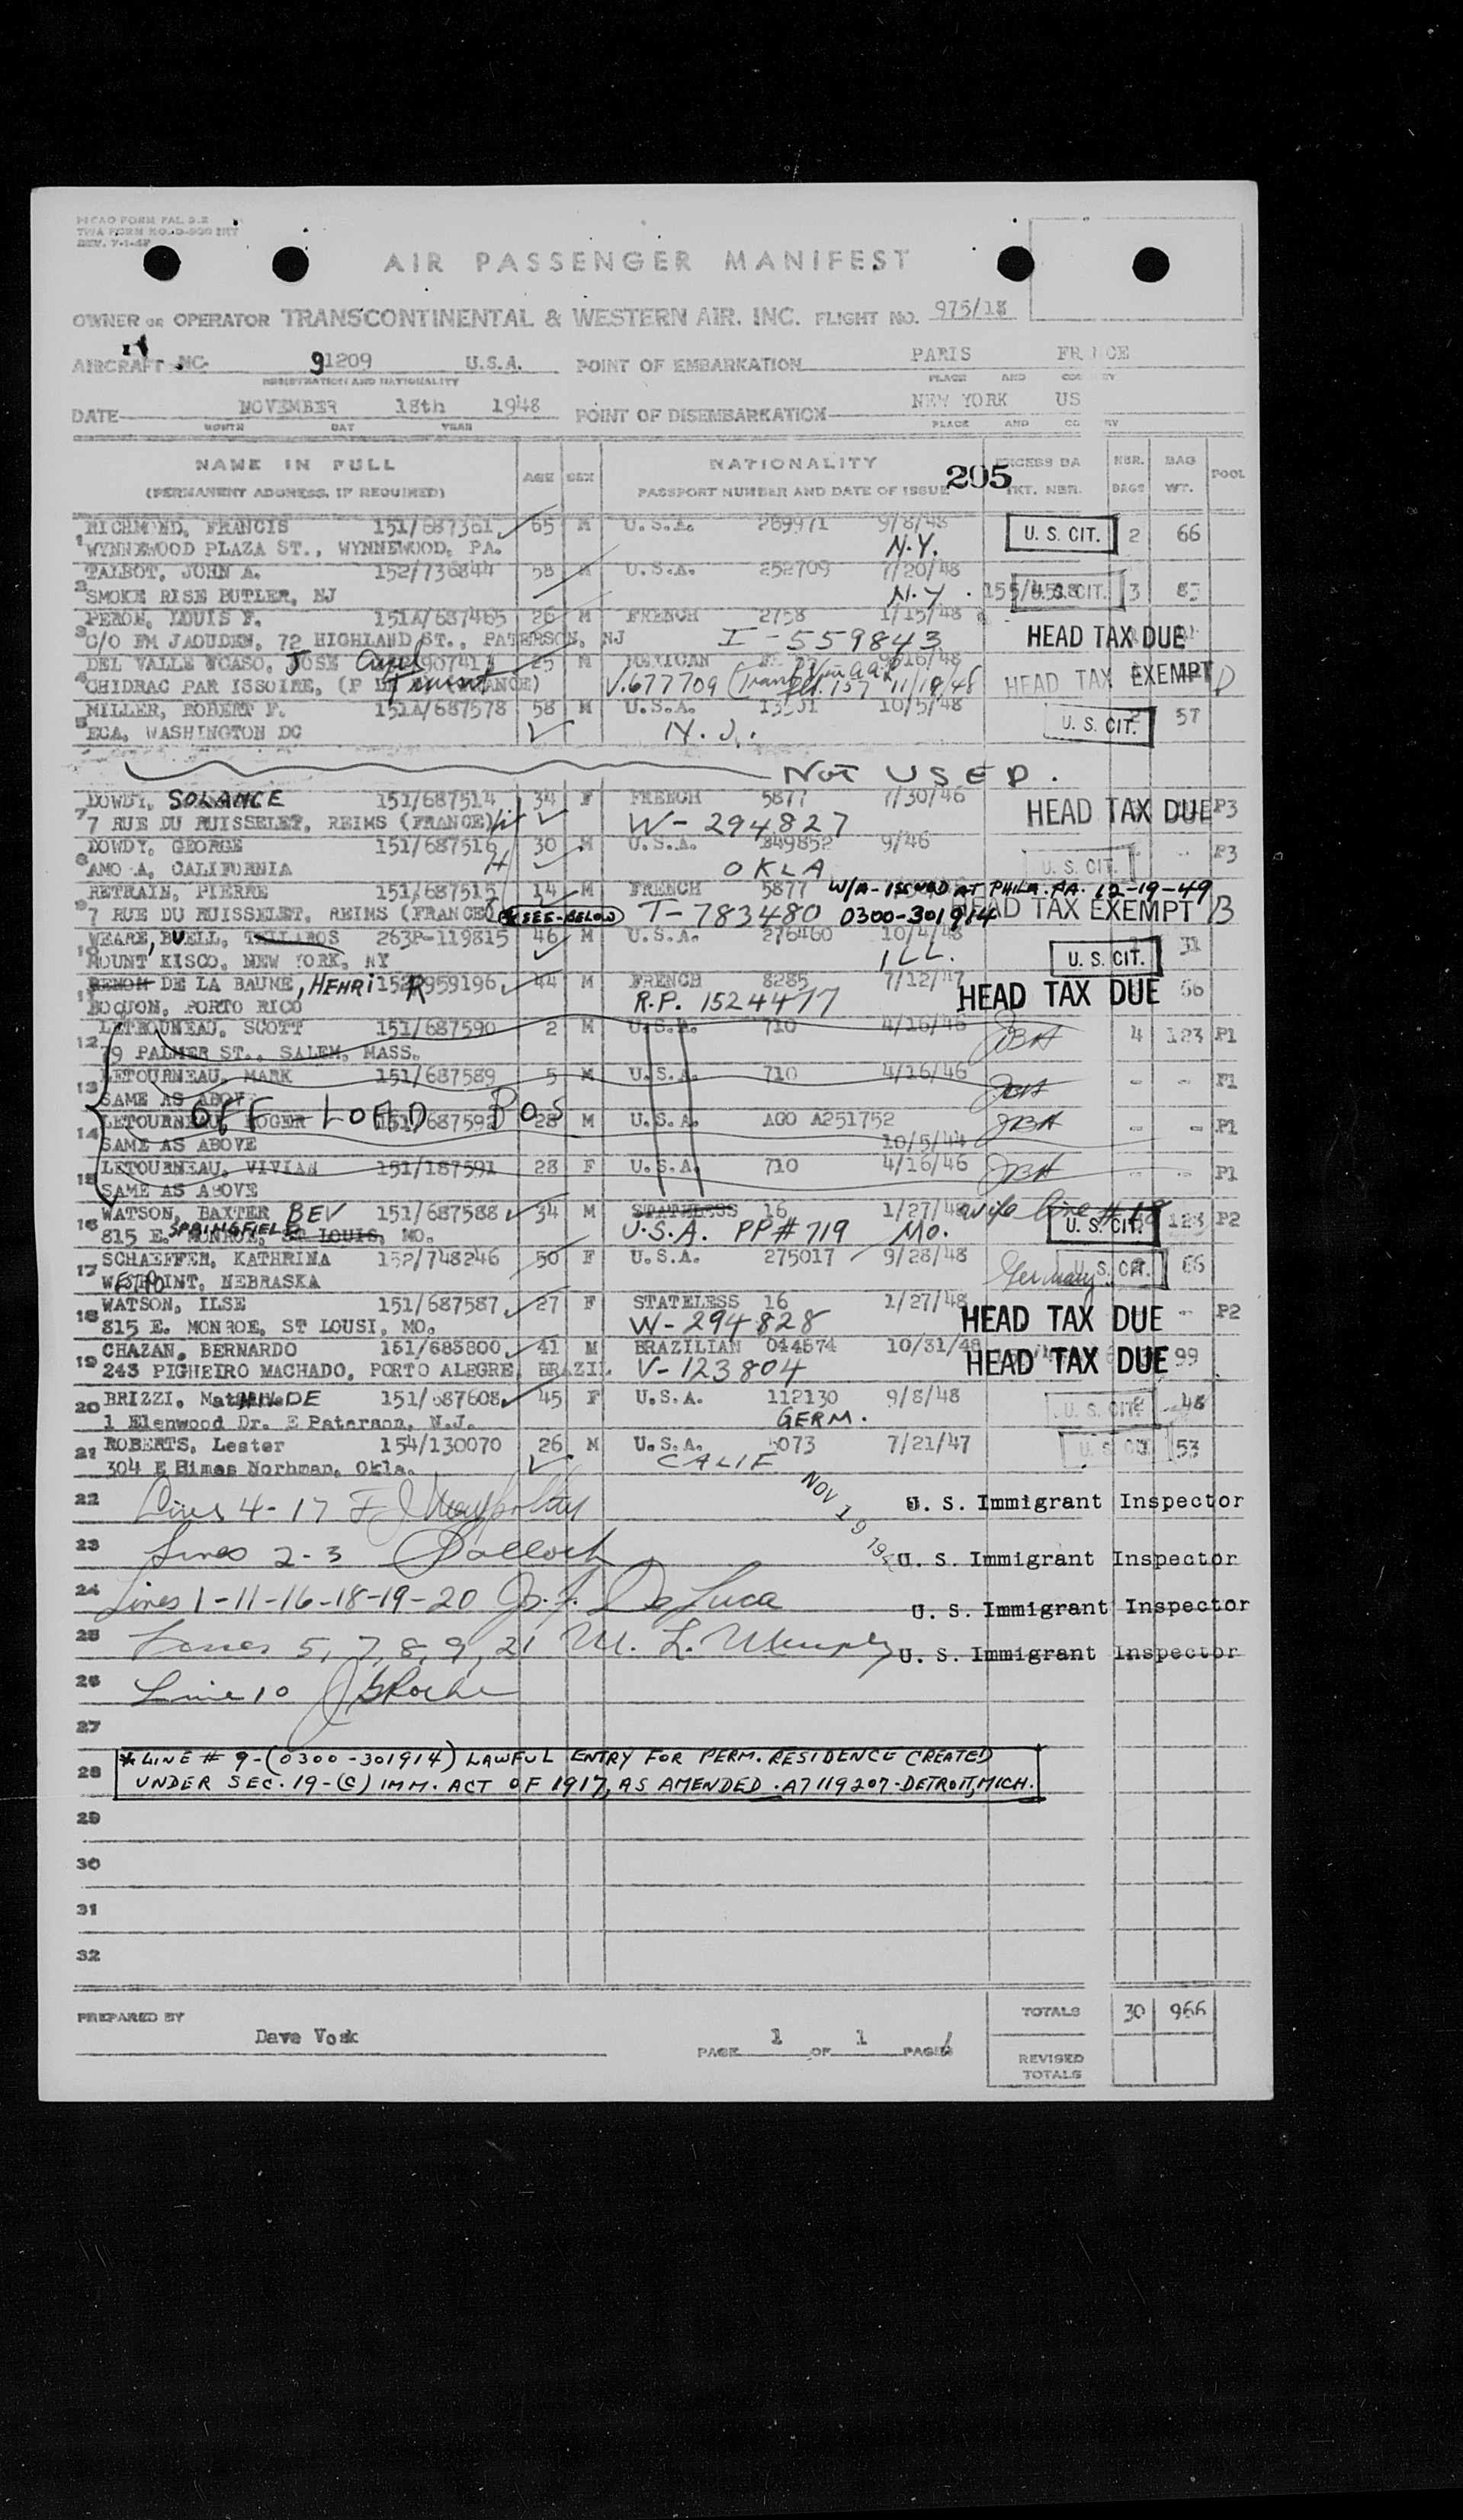 PICAO FORM FAL 3.2
TWA FORM NO. D-900 INT
REV. 7-1-47
AIR PASSENGER MANIFEST
OWNER OR OPERATOR TRANSCONTINENTAL & WESTERN AIR. INC. FLIGHT NO. 975/18
AIRCRAFT NC 91209 U.S.A. POINT OF EMBARKATION PARIS
REGISTRATION AND NATIONALITY PLACE AND
DATE NOVEMBER 18th 1948 POINT OF DISEMBARKATION NEW YORK US
MONTH DAY YEAR PLACE AND
NAME IN FULL AGE SEX NATIONALITY NBR. BAG POOL
(PERMANENT ADDRESS, IF REQUIRED) PASSPORT NUMBER AND DATE OF ISSUE 205 TKT. NBR. BAGS WT.
RICHMOND, FRANCIS 151/687361 65 M U.S.A. 269971 9/8/48 U. S. CIT. 2 66
1 WYNNEWOOD PLAZA ST., WYNNEWOOD, PA. N.Y.
TALBOT, JOHN A. 152/736844 58 M U.S.A. 252709 7/20/48 U.S. CIT. 3 83
2 SMOKE RISE BUTLER, NJ N.Y.
PERON, LOUIS F. 151A/687465 26 M FRENCH 2758 1/15/48
3 C/O EM JAOUDEN, 72 HIGHLAND ST., PATERSON, NJ I-559843 HEAD TAX DUE
DEL VALLE JOSE 25 M MEXICAN
4 CHIDRAC PAR ISSOIRE, V.677709 11/19/48 HEAD TAX EXEMPT
MILLER, ROBERT F. 151A/687578 58 M U.S.A. 10/5/48 U. S. CIT. 57
5 ECA, WASHINGTON DC N.J.
NOT USED.
DOWDY, SOLANGE 151/687514 34 F FRENCH 5877 7/30/46 HEAD TAX DUE P3
7 7 RUE DU RUISSELET, REIMS (FRANCE) W-294827
DOWDY, GEORGE 151/687516 30 M U.S.A. 349852 9/46 U. S. CIT. - P3
8 CALIFORNIA OKLA
RETRAIN, PIERRE 151/687515 14 M FRENCH 5877 W/A-ISSUED AT PHILA. PA. 12-19-49
9 7 RUE DU RUISSELET, REIMS (FRANCE) * SEE-BELOW T-783480 0300-301914 HEAD TAX EXEMPT
WEARE, BUELL, 263P-119815 46 M U.S.A. 276460 10/4/48 U. S. CIT. 31
10 MOUNT KISCO, NEW YORK, NY ILL.
DE LA BAUME, HENRI 959196 44 M FRENCH 8285 7/12/47 HEAD TAX DUE 66
11 PORTO RICO R.P. 1524477
LETOURNEAU, SCOTT 151/687590 2 M U.S.A. 710 4/16/46 JBA 4 123 P1
12 79 PALMER ST., SALEM, MASS.
LETOURNEAU, MARK 151/687589 5 M U.S.A. 710 4/16/46 JBA - - P1
13 SAME AS ABOVE
OFF LOAD
LETOURNEAU, ROGER 151/687592 28 M U.S.A. AGO A251752 JBA - - P1
14 SAME AS ABOVE 10/5/44
LETOURNEAU, VIVIAN 151/187591 28 F U.S.A. 710 4/16/46 JBA - - P1
15 SAME AS ABOVE
WATSON, BAXTER BEV 151/687588 34 M STATELESS 16 1/27/48 wife line # 18 U. S. CIT. 123 P2
16 815 E. MONROE, SPRINGFIELD ST LOUIS, MO. U.S.A. PP# 719 MO.
SCHAEFFER, KATHRINA 152/748246 50 F U.S.A. 275017 9/28/48 Germany U. S. CIT. 66
17 WESTPOINT, NEBRASKA
WATSON, ILSE 151/687587 27 F STATELESS 16 1/27/48 HEAD TAX DUE - P2
18 815 E. MONROE, ST LOUSI, MO. W-294828
CHAZAN, BERNARDO 151/685800 41 M BRAZILIAN 044574 10/31/48 HEAD TAX DUE 99
19 243 PIGHEIRO MACHADO, PORTO ALEGRE, BRAZIL V-123804
20 BRIZZI, 151/687608 45 F U.S.A. 112130 9/8/48 U. S. CIT. 48
1 Elenwood Dr. E Paterson, N.J. GERM.
21 ROBERTS, Lester 154/130070 26 M U.S.A. 5073 7/21/47 U. S. CIT. 53
304 E Himes Norhman, Okla. CALIF
22 Lines 4-17 NOV 19 U. S. Immigrant Inspector
23 Lines 2-3 U. S. Immigrant Inspector
24 Lines 1-11-16-18-19-20 Jos. F. DeLuca U. S. Immigrant Inspector
25 Lines 5, 7, 8, 9, 21 M. L. Murphy U. S. Immigrant Inspector
26 Line 10
27
28 * LINE # 9-(0300-301914) LAWFUL ENTRY FOR PERM. RESIDENCE CREATED
UNDER SEC. 19-(C) IMM. ACT OF 1917, AS AMENDED. A7119207-DETROIT, MICH.
29
30
31
32
PREPARED BY Dave Vosk PAGE 1 OF 1 PAGES TOTALS 30 966
REVISED
TOTALS